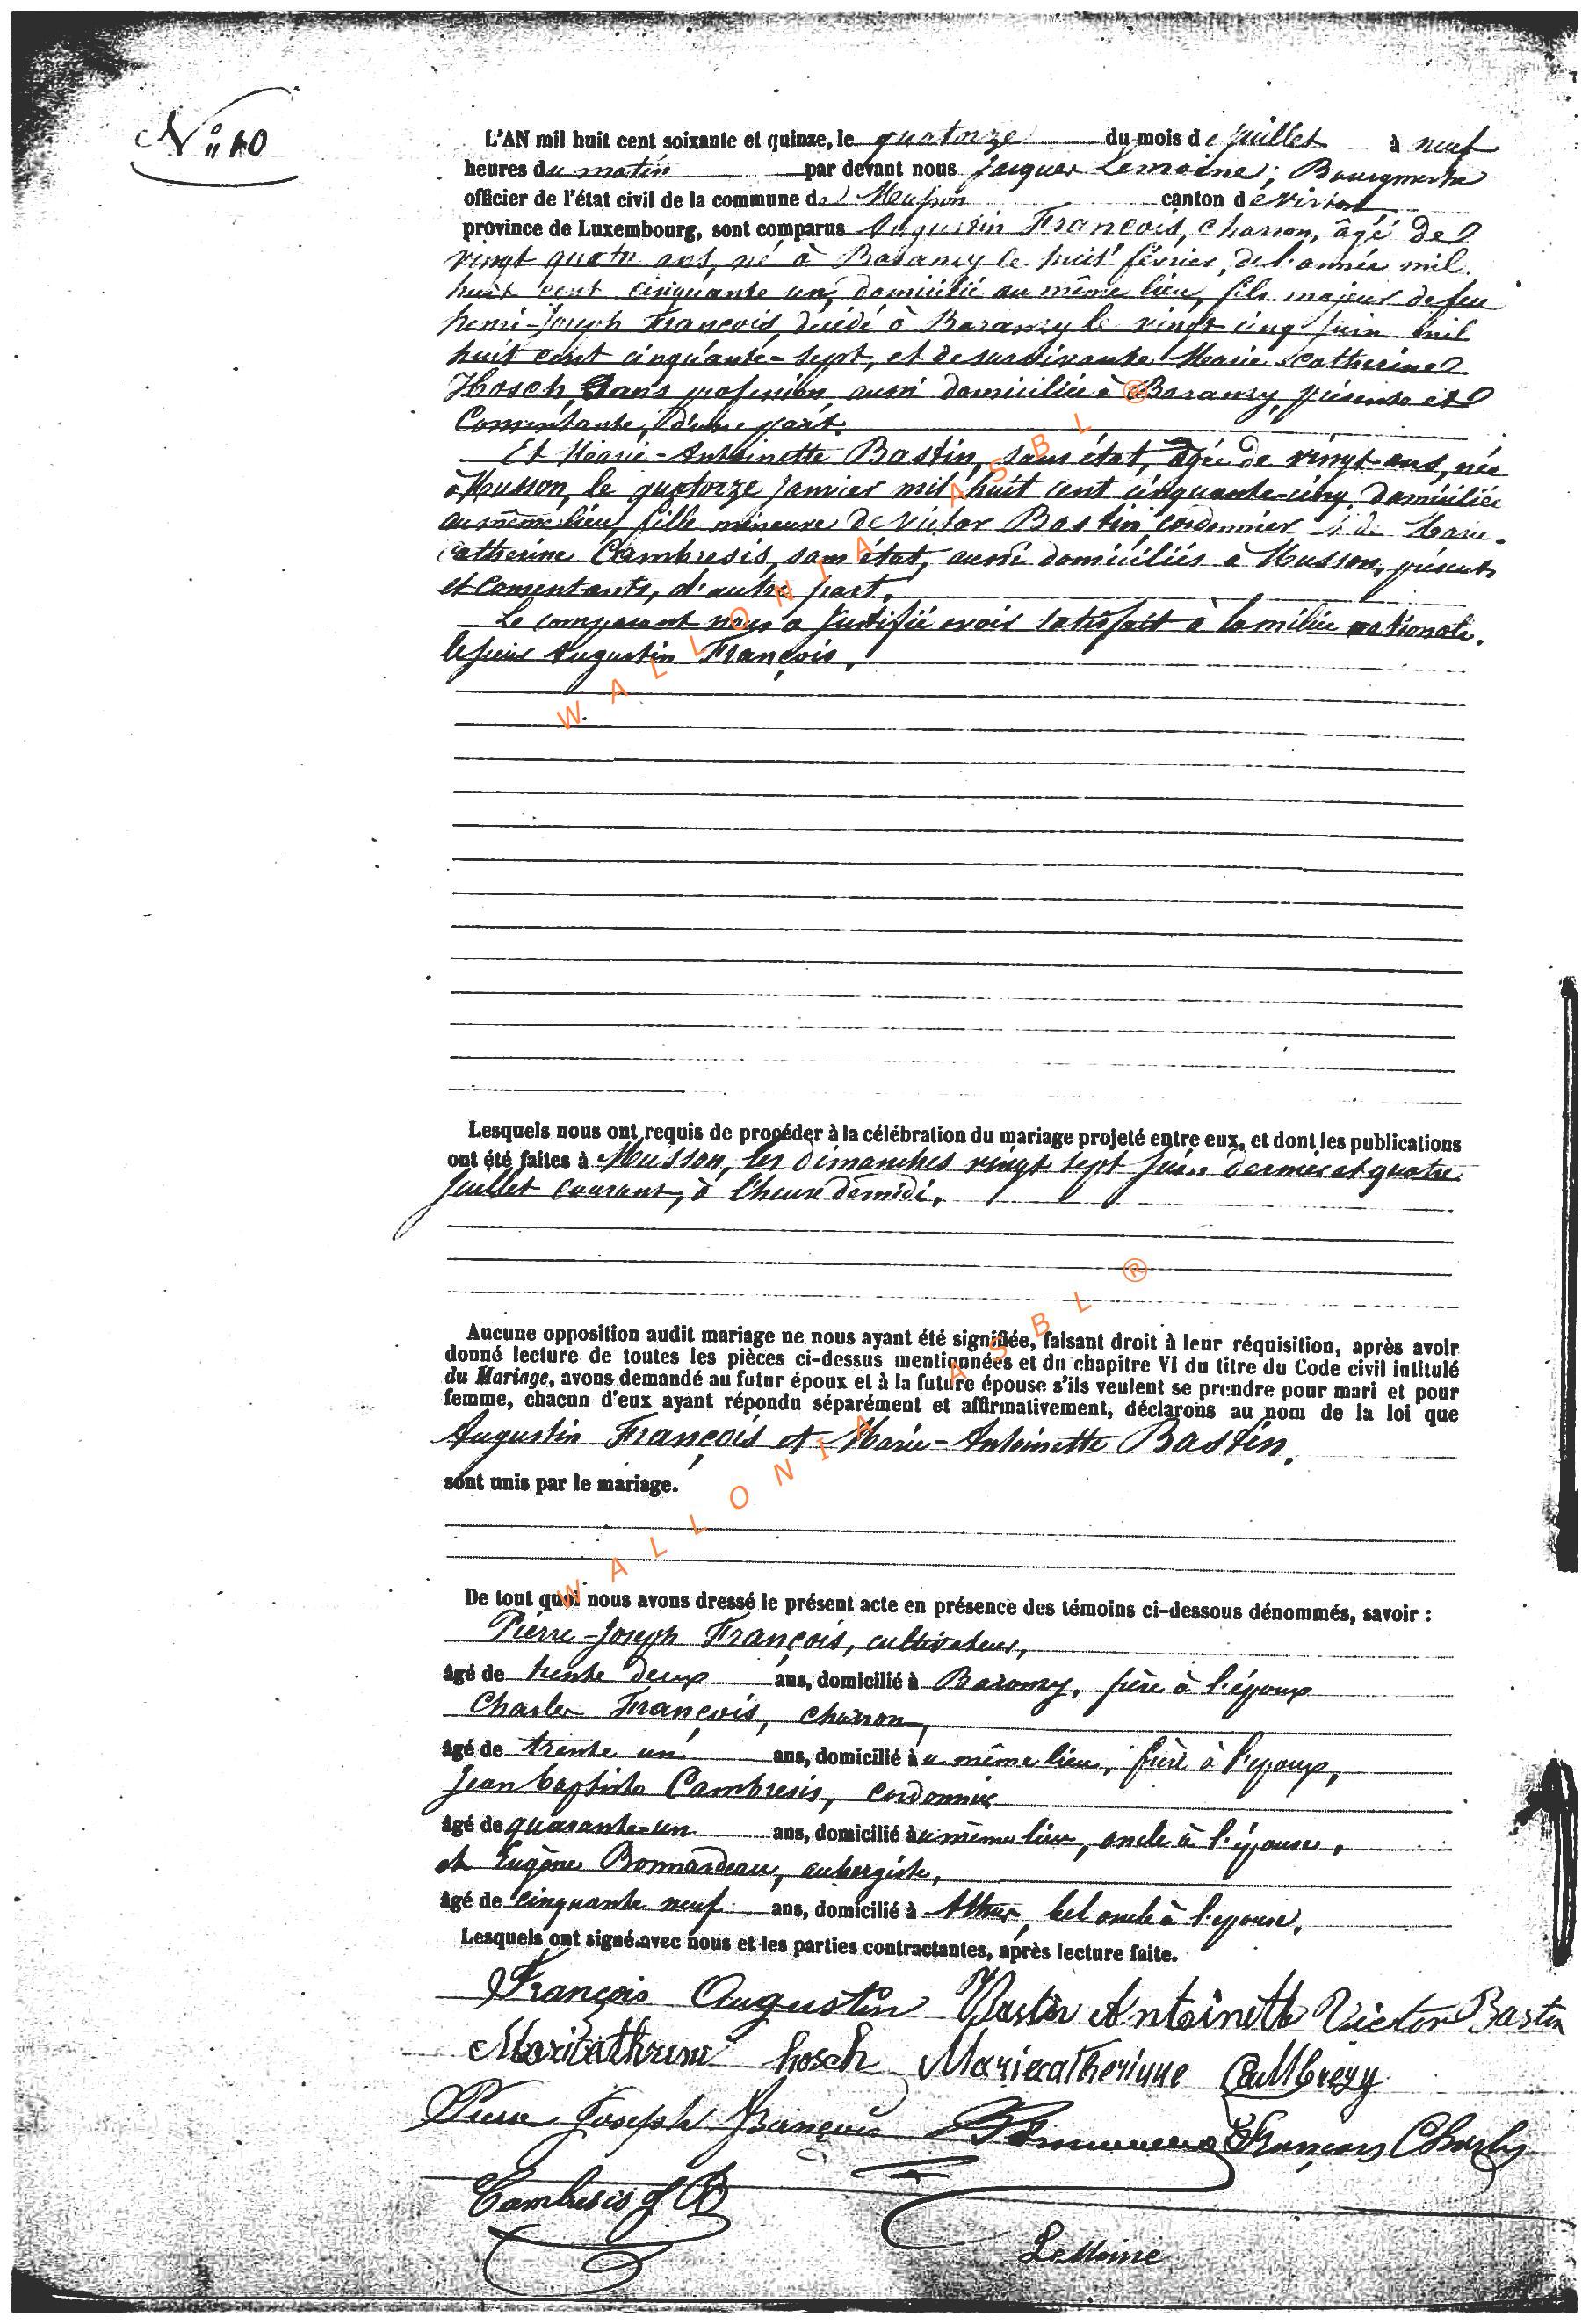 N° 10
L'AN mil huit cent soixante et quinze, le quatorze du mois de juillet à neuf
heures du matin par devant nous Jacques Lemoine, Bourgmestre
officier de l'état civil de la commune de Musson canton de Virton
province de Luxembourg, sont comparus Augustin François, charron, âgé de
vingt quatre ans, né à Baranzy le huit février de l'année mil
huit cent cinquante un, domicilié au même lieu, fils majeur de feu
henri-Joseph François, décédé à Baranzy le vingt cinq juin mil
huit cent cinquante-sept, et de survivante Marie Catherine
Hosch, sans profession, aussi domiciliée à Baranzy, présente et
Consentante, d'une part.
Et Marie-Antoinette Bastin, sans état, âgée de vingt ans, née
à Musson, le quatorze janvier mil huit cent cinquante-cinq, domiciliée
au même lieu, fille mineure de Victor Bastin, cordonnier & de Marie-
Catherine Cambresis, sans état, aussi domiciliés à Musson, présents
et consentants, d'autre part.
Le comparant nous a justifié avoir satisfait à la milice nationale.
le sieur Augustin François.
Lesquels nous ont requis de procéder à la célébration du mariage projeté entre eux, et dont les publications
ont été faites à Musson, les dimanches vingt sept juin dernier et quatre
juillet courant, à l'heure de midi.
Aucune opposition audit mariage ne nous ayant été signifiée, faisant droit à leur réquisition, après avoir
donné lecture de toutes les pièces ci-dessus mentionnées et du chapitre VI du titre du Code civil intitulé
du Mariage, avons demandé au futur époux et à la future épouse s'ils veulent se prendre pour mari et pour
femme, chacun d'eux ayant répondu séparément et affirmativement, déclarons au nom de la loi que
Augustin François et Marie-Antoinette Bastin.
sont unis par le mariage.
De tout quoi nous avons dressé le présent acte en présence des témoins ci-dessous dénommés, savoir :
Pierre-Joseph François, cultivateur,
âgé de trente deux ans, domicilié à Baranzy, frère à l'époux
Charles François, charron,
âgé de trente un ans, domicilié au même lieu, frère à l'époux,
Jean baptiste Cambresis, cordonnier
âgé de quarante-un ans, domicilié au même lieu, oncle à l'épouse,
et Eugène Bonnardeau, aubergiste,
âgé de cinquante neuf ans, domicilié à Athus, bel oncle à l'épouse.
Lesquels ont signé avec nous et les parties contractantes, après lecture faite.
François Augustin Bastin Antoinette Victor Bastin
Maricathrine hosch Mariecatherinne Cambrezy
Pierre Joseph François François Charles
Cambresis J B
Lemoine
WALLONIA ASBL ®
WALLONIA ASBL ®